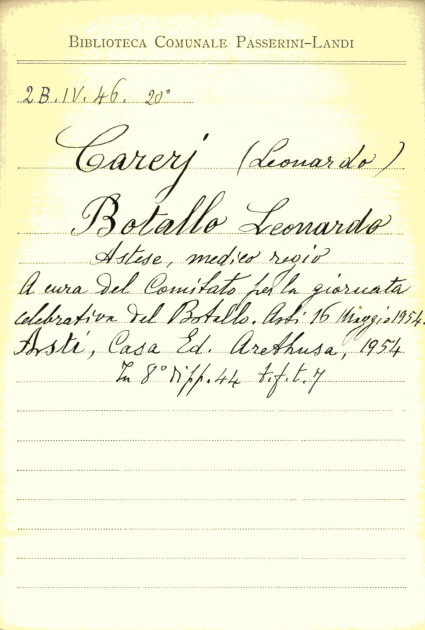 BIBLIOTECA COMUNALE PASSERINI-LANDI
2B.IV.46. 20°
Carerj (Leonardo)
Botallo Leonardo
Astese, medico regio
A cura del Comitato per la giornata
celebrativa del Botallo. Asti 16 Maggio 1954.
Asti, Casa Ed. Arethusa, 1954
In 8° di pp. 44 t.f.t. 7